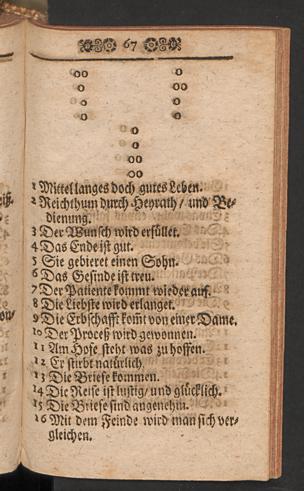 67
1 Mittel langes doch gutes Leben.
2 Reichthum durch Heyrath / und Be-
dienung.
3 Der Wunsch wird erfüllet.
4 Das Ende ist gut.
5 Sie gebieret einen Sohn.
6 Das Gesinde ist treu.
7 Der Patiente kommt wieder auf.
8 Die Liebste wird erlanget.
9 Die Erbschafft kom̃t von einer Dame.
10 Der Proceß wird gewonnen.
11 Am Hofe steht was zu hoffen.
12 Er stirbt natürlich.
13 Die Briefe kommen.
14 Die Reise ist lustig / und glücklich.
15 Die Briefe sind angenehm.
16 Mit dem Feinde wird man sich ver-
gleichen.